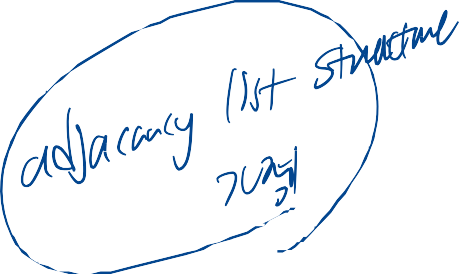 adjacancy list structure
기준